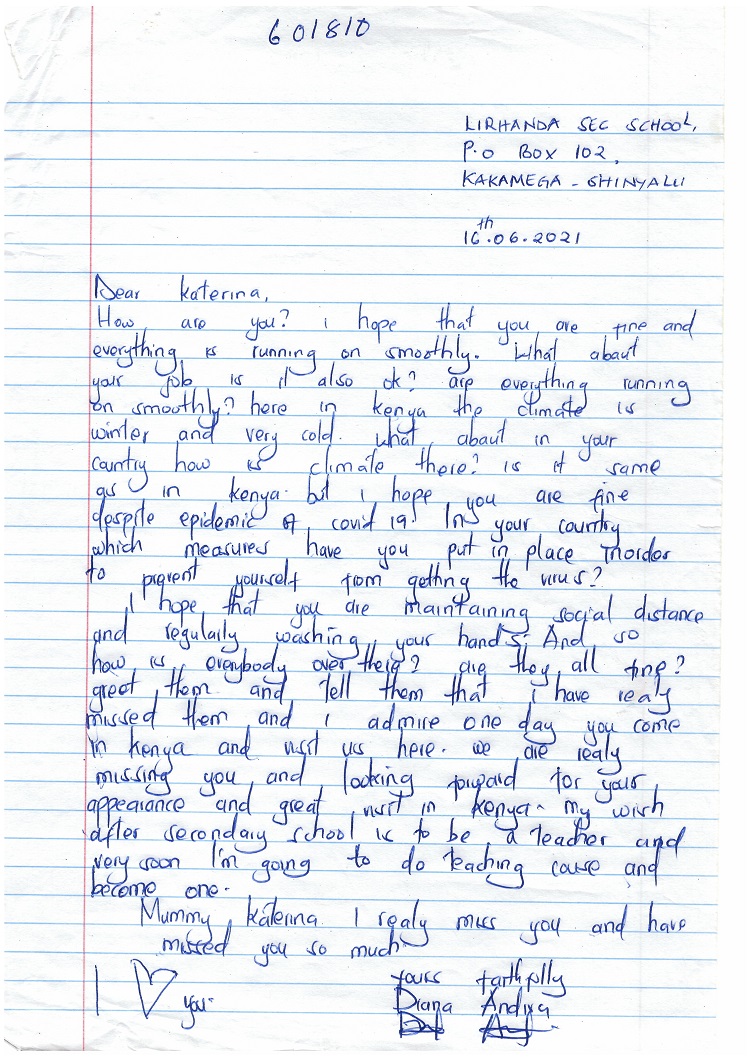 601810
LIRHANDA SEC SCHOOL,
P.O BOX 102,
KAKAMEGA - SHINYALU
16th.06.2021
Dear Katerina,
How are you? i hope that you are fine and
everything is running on smoothly. What about
your job is it also ok? are everything running
on smoothly? here in kenya the climate is
winter and very cold. what about in your
country how is climate there? is it same
as in kenya. but i hope you are fine
despite epidemic of covid 19. In your country
which measures have you put in place inorder
to prevent yourself from getting the virus?
I hope that you are maintaining social distance
and regularly washing your hands. And so
how is everybody over there? are they all fine?
great them and tell them that i have realy
missed them and i admire one day you come
in kenya and visit us here. we are realy
missing you and looking forward for your
appearance and great visit in kenya. my wish
after secondary school is to be a teacher and
very soon I'm going to do teaching couse and
become one.
Mummy katerina I realy miss you and have
missed you so much.
I ♡ you.
yours faithfully
Diana Andixa